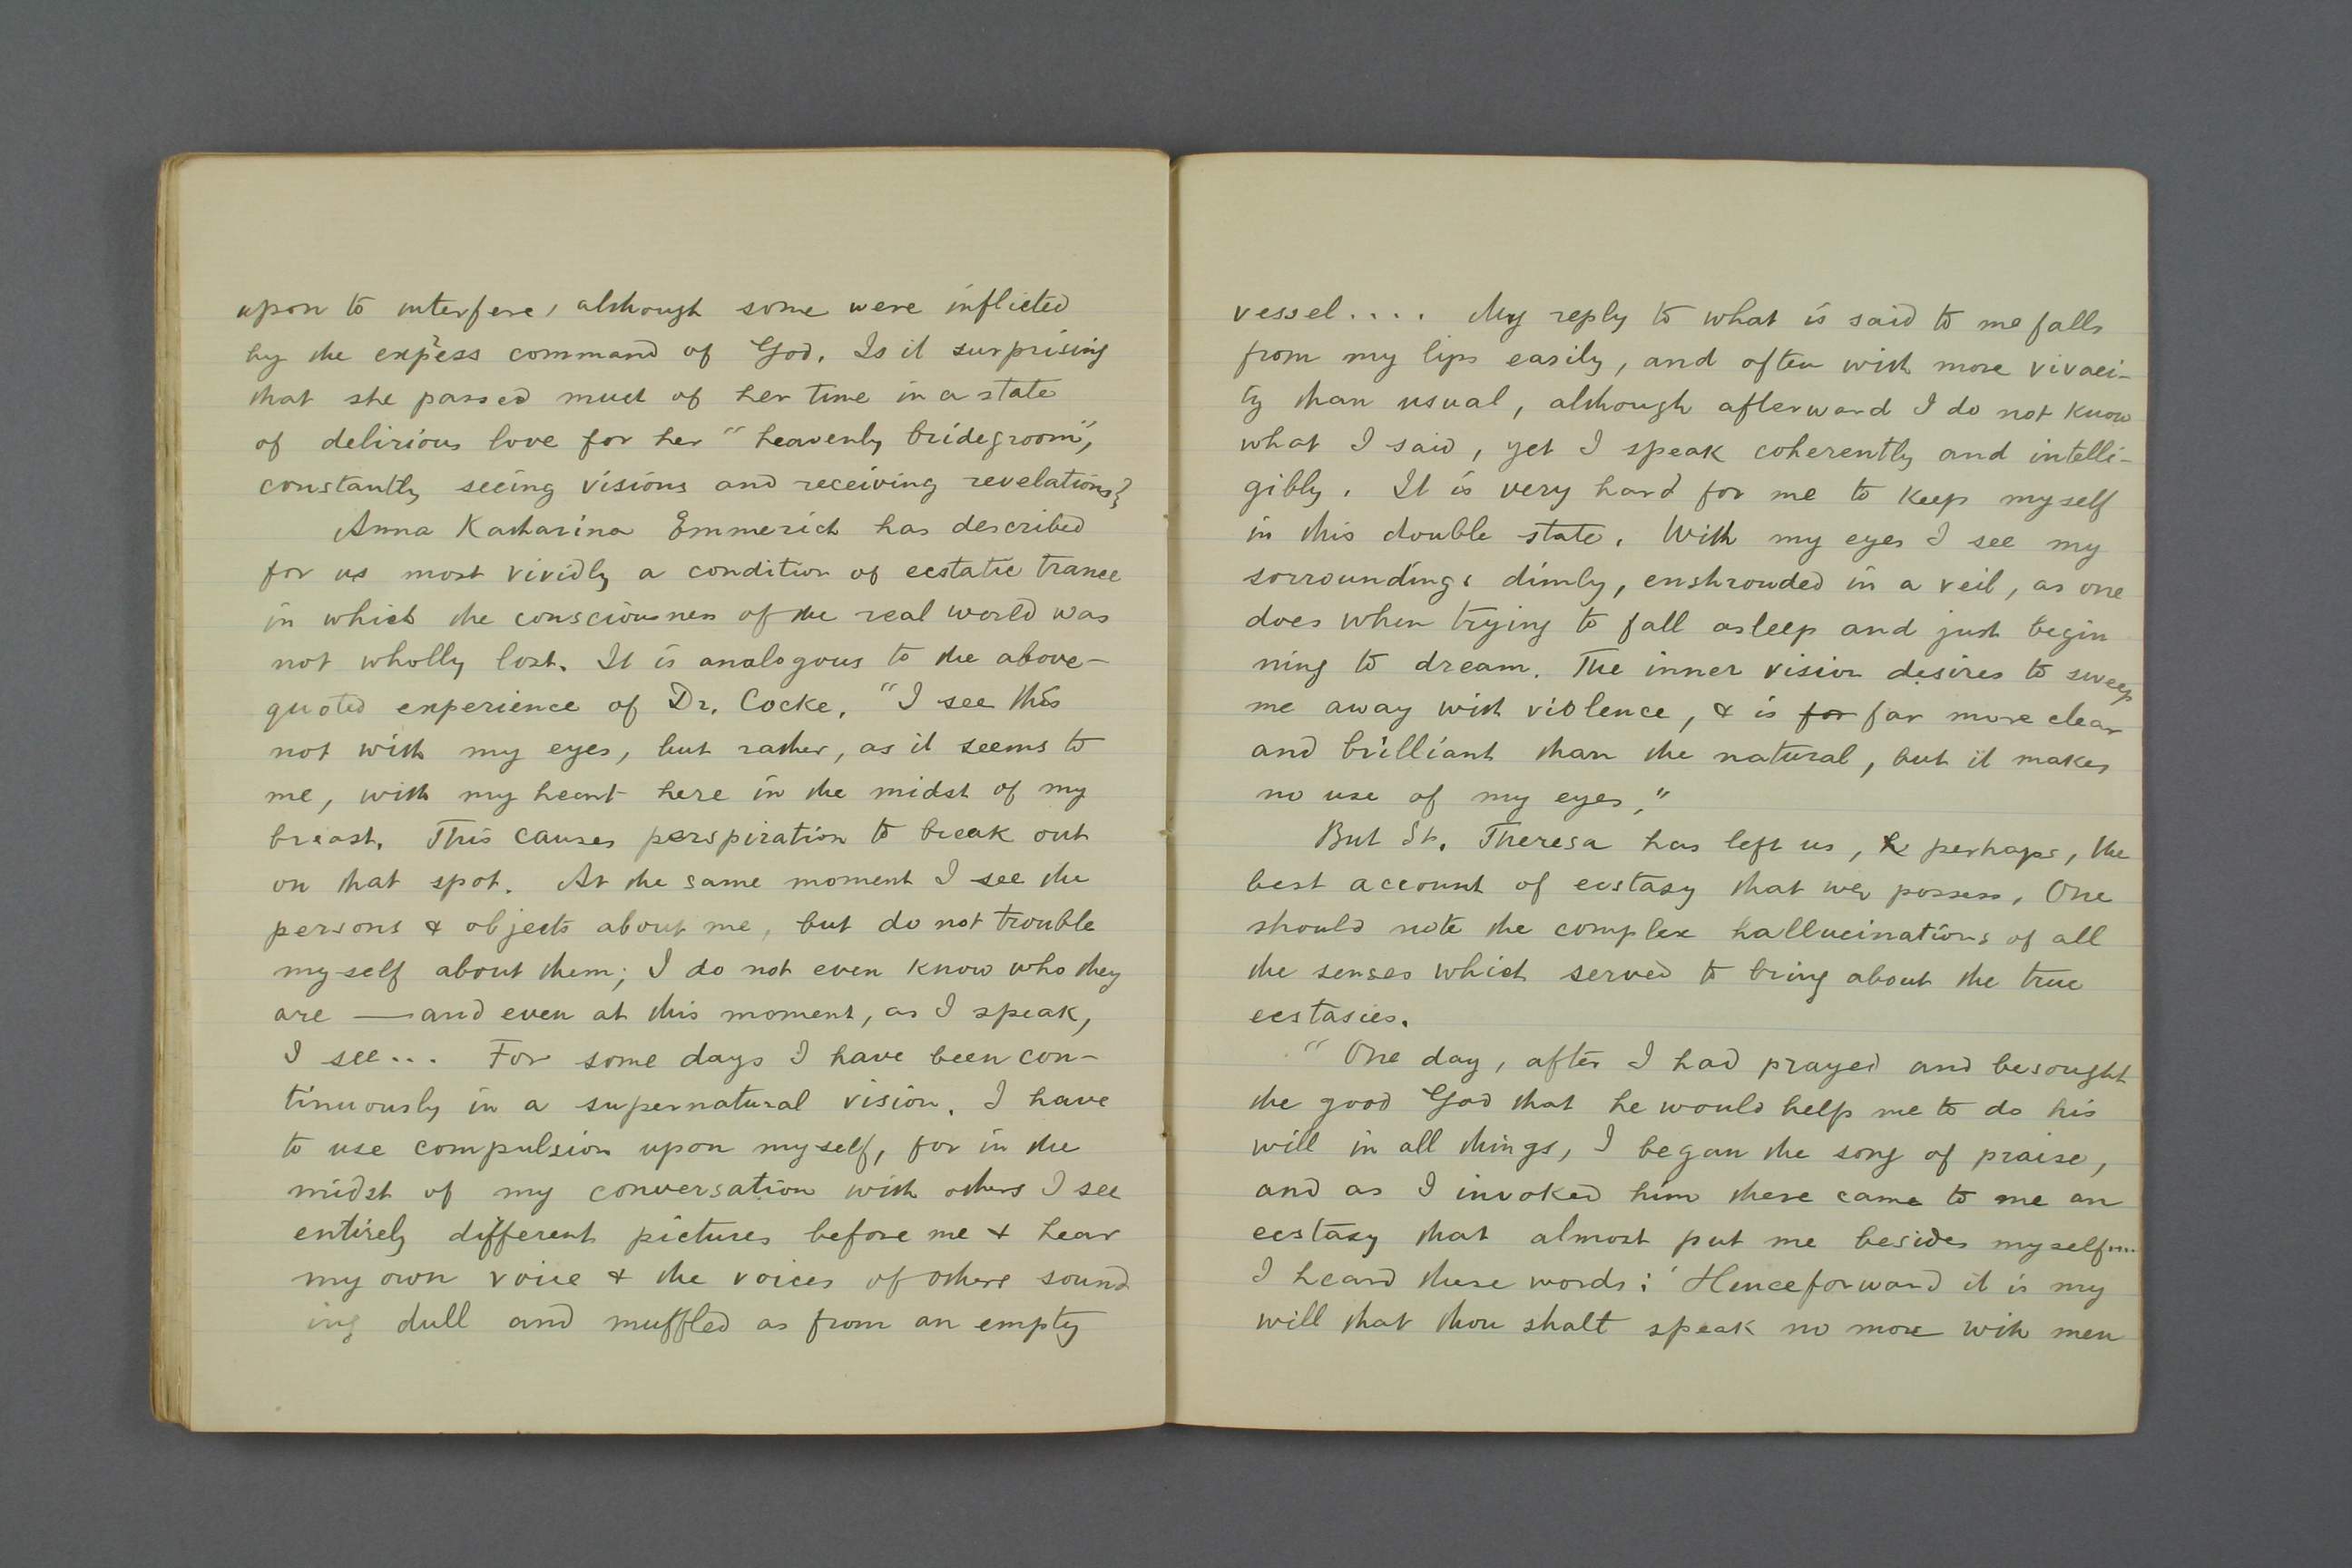 upon to interfere, although some were inflicted
by the express command of God. Is it surprising
that she passed much of her time in a state
of delirious love for her "heavenly bridegroom",
constantly seeing visions and receiving revelations?
Anna Katharina Emmerich has described
for us most vividly a condition of ecstatic trance
in which the consciousness of the real world was
not wholly lost. It is analogous to the above-
quoted experience of Dr. Cocke. "I see this
not with my eyes, but rather, as it seems to
me, with my heart here in the midst of my
breast. This causes perspiration to break out
on that spot. At the same moment I see the
persons & objects about me, but do not trouble
myself about them; I do not even know who they
are — and even at this moment, as I speak,
I see... For some days I have been con-
tinuously in a supernatural vision. I have
to use compulsion upon myself, for in the
midst of my conversation with others I see
entirely different pictures before me & hear
my own voice & the voices of others sound
ing dull and muffled as from an empty
vessel.... My reply to what is said to me falls
from my lips easily, and often with more vivaci-
ty than usual, although afterward I do not know
what I said, yet I speak coherently and intelli-
gibly. It is very hard for me to keep myself
in this double state. With my eyes I see my
sorroundings dimly, enshrouded in a veil, as one
does when trying to fall asleep and just begin
ning to dream. The inner vision desires to sweep
me away with violence, & is for far more clear
and brilliant than the natural, but it makes
no use of my eyes."
But St. Theresa has left us, perhaps, the
best account of ecstasy that we possess. One
should note the complex hallucinations of all
the senses which served to bring about the true
ecstasies.
"One day, after I had prayed and besought
the good God that he would help me to do his
will in all things, I began the song of praise,
and as I invoked him there came to me an
ecstasy that almost put me besides myself....
I heard these words: 'Henceforward it is my
will that thou shalt speak no more with men